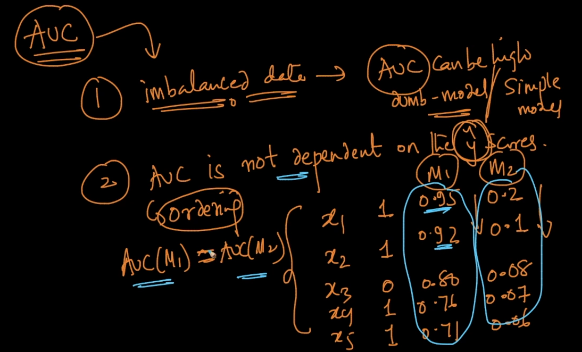 AUC
① imbalanced data → AUC can be high
dumb-model / Simple model
② AUC is not dependent on the ŷ scores.
M1 M2
ordering
x1 1 0.95 0.2
x2 1 0.92 0.1
AUC(M1) = AUC(M2)
x3 0 0.80 0.08
x4 1 0.76 0.07
x5 1 0.71 0.06